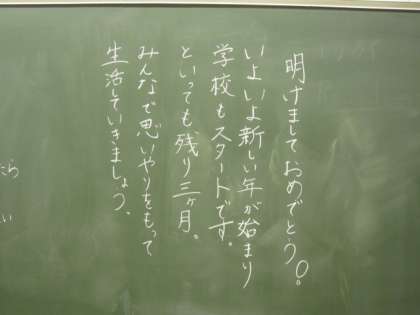 明けましておめでとう。
いよいよ新しい年が始まり
学校もスタートです。
といっても残り三ヶ月。
みんなで思いやりをもって
生活していきましょう。
たら
い